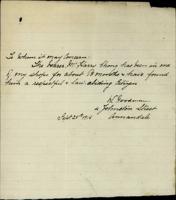 To Whom it may Concern
The bearer Mr Harry Chong has been in one
of my shops for about 18 months & have found
him a respectful & law abiding Citizen
Goodman
Johnston Street
Annandale
Sept 28th 1915